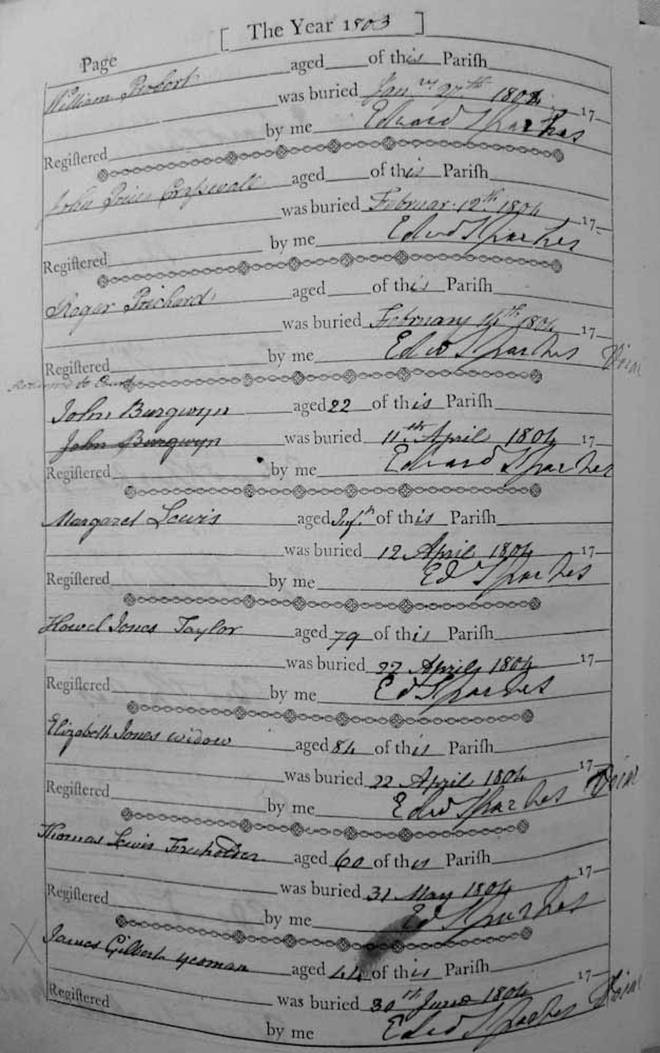 [ The Year 1803 ]
Page
William Probert aged of this Pariſh
was buried Jan.ry 27th 1804 17
Registered by me Edward Sparkes
John aged of this Pariſh
was buried Februar. 12th 1804 17
Registered by me Edwd Sparkes
Roger Prichard aged of this Pariſh
was buried February 14th 1804 17
Registered by me Edwd Sparkes Vicar
Returned to Court
John Burgwyn aged 22 of this Pariſh
John Burgwyn was buried 11th April 1804 17
Registered by me Edward Sparkes
Margaret Lewis aged Inft. of this Pariſh
was buried 12 April 1804 17
Registered by me Ed Sparkes
Howel Jones Taylor aged 79 of this Pariſh
was buried 22 April 1804 17
Registered by me Ed Sparkes
Elizabeth Jones widow aged 84 of this Pariſh
was buried 22 April 1804 17
Registered by me Edwd Sparkes Vicar
Thomas Lewis Freeholder aged 60 of this Pariſh
was buried 31 May 1804 17
Registered by me Ed Sparkes
X
James Gilbert yeoman aged 44 of this Pariſh
was buried 30th June 1804 17
Registered by me Edwd Sparkes Vicar